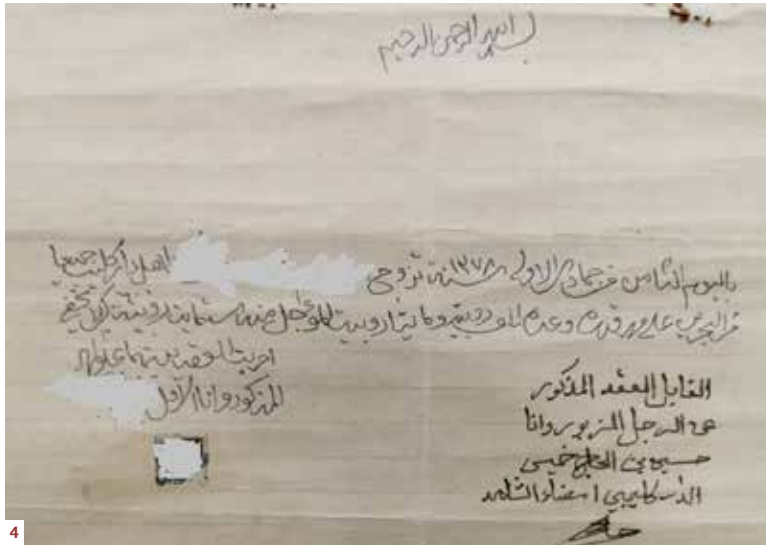 بسم الله الرحمن الرحيم
باليوم الثامن من جمادى الاولى سنة ١٣٧٨ تزوج اهل دار كليب جميعا
من البحرين على مهر قدره وعده الف روبية ومايتا روبية المؤجل منه ستماية روبية
اجريت العقد بينهما على المهر
المذكور وانا الاقل
القابل العقد المذكور
عن الرجل المزبور وانا
حسين بن الحاج خميس
الدار كليبي امضاء الشاهد
4